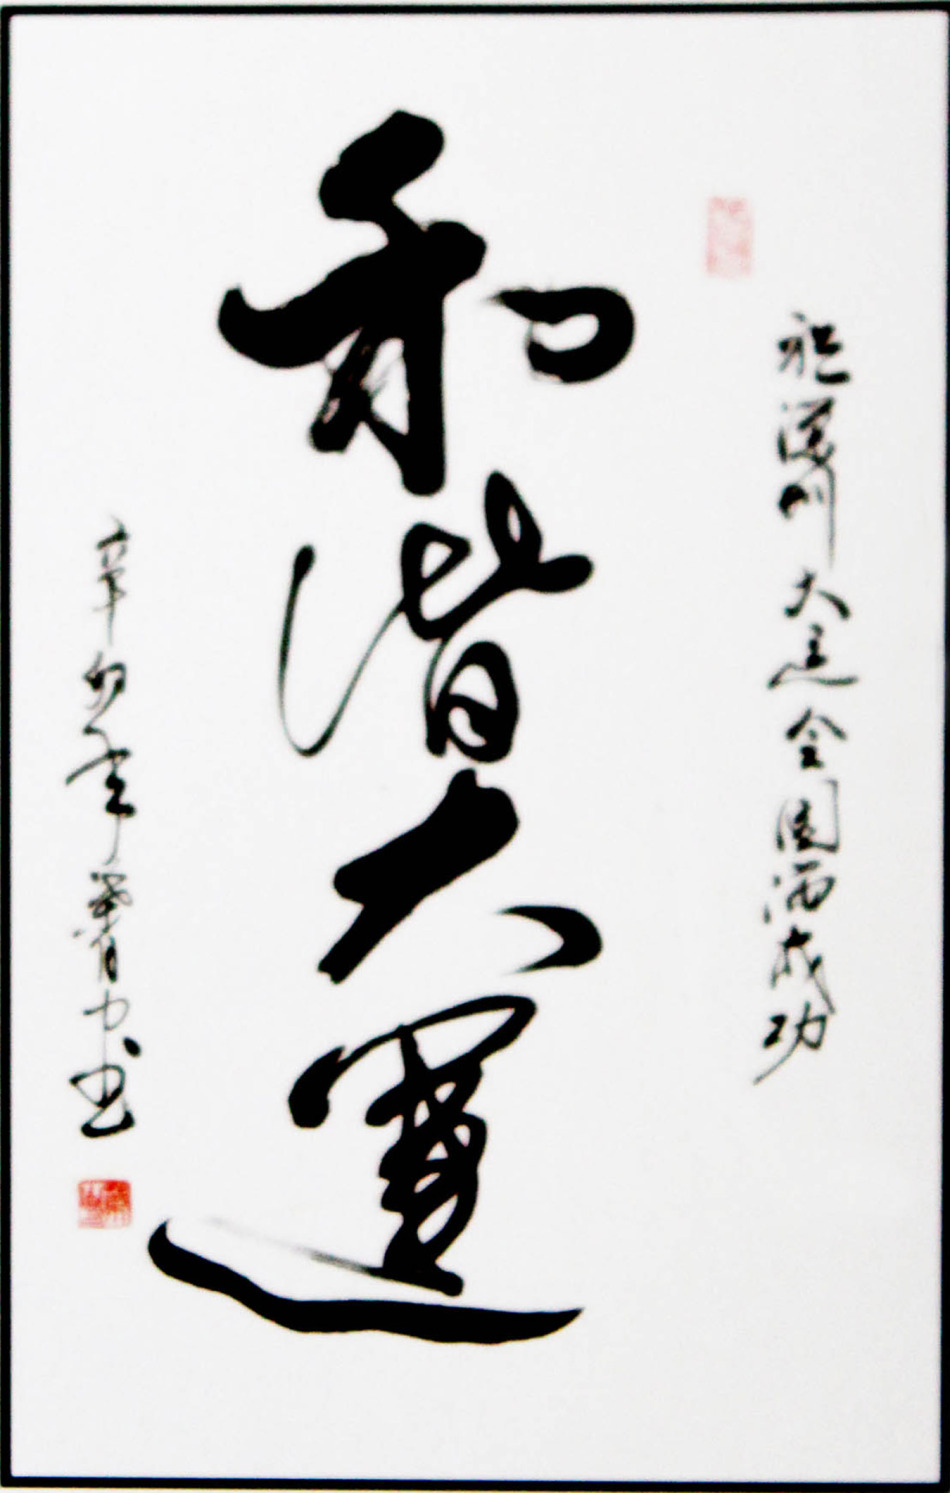 祝深圳大运会圆满成功
和谐大運
辛卯年书